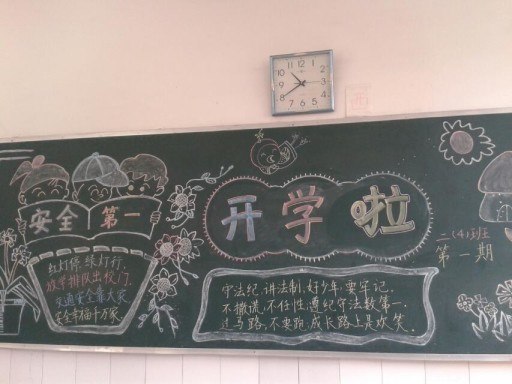 安全第一
开学啦
二(4)班
第一期
红灯停.绿灯行.
放学排队出校门.
交通安全靠大家
安全幸福千万家
守法纪.讲法制.好少年.要牢记.
不撒谎,不任性.遵纪守法数第一.
过马路,不要跑.成长路上是欢笑.
12
1
2
3
4
5
6
7
8
9
10
11
西